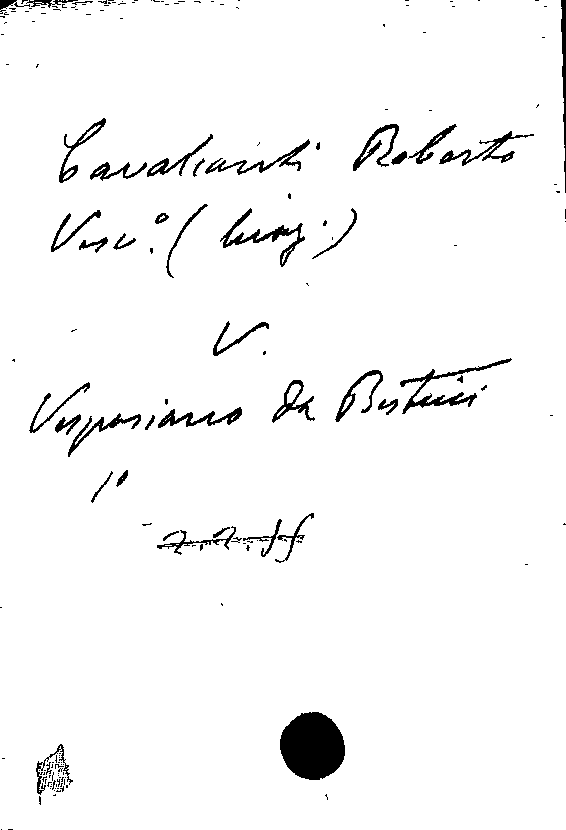 Cavalcanti Roberto
Vesc.º (biog.)
V.
Vespasiano da Bisticci
1º